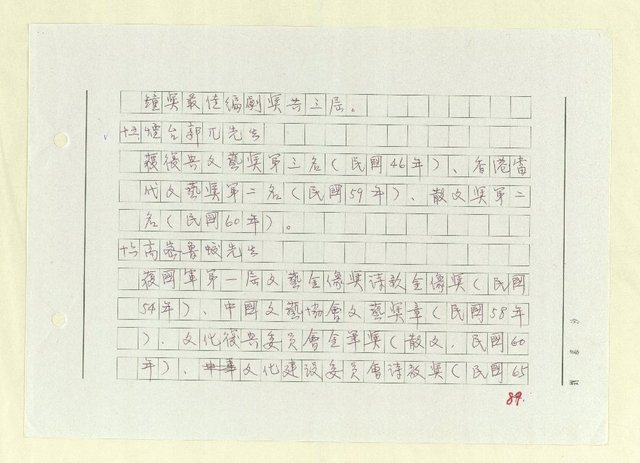 鐘奖最佳編劇奖共三屆。
十五烟台郭兀先生
獲復兴文藝奖第三名(民國46年)、香港當
代文藝奖第二名(民國59年)、散文奖第二
名(民國60年)。
十六高密魯蛟先生
獲國軍第一屆文藝金像奖詩歌金像奖(民國
54年)、中國文藝協會文藝奖章(民國58年
)、文化復兴委員會金筆奖(散文.民國60
年)、文化建設委員會詩教奖(民國65
89.